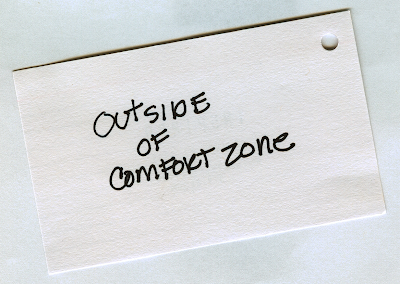 OUtSIDE
OF
COMFORT ZONe